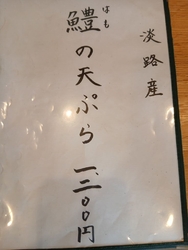 淡路産
鱧の天ぷら 一、三〇〇円
はも